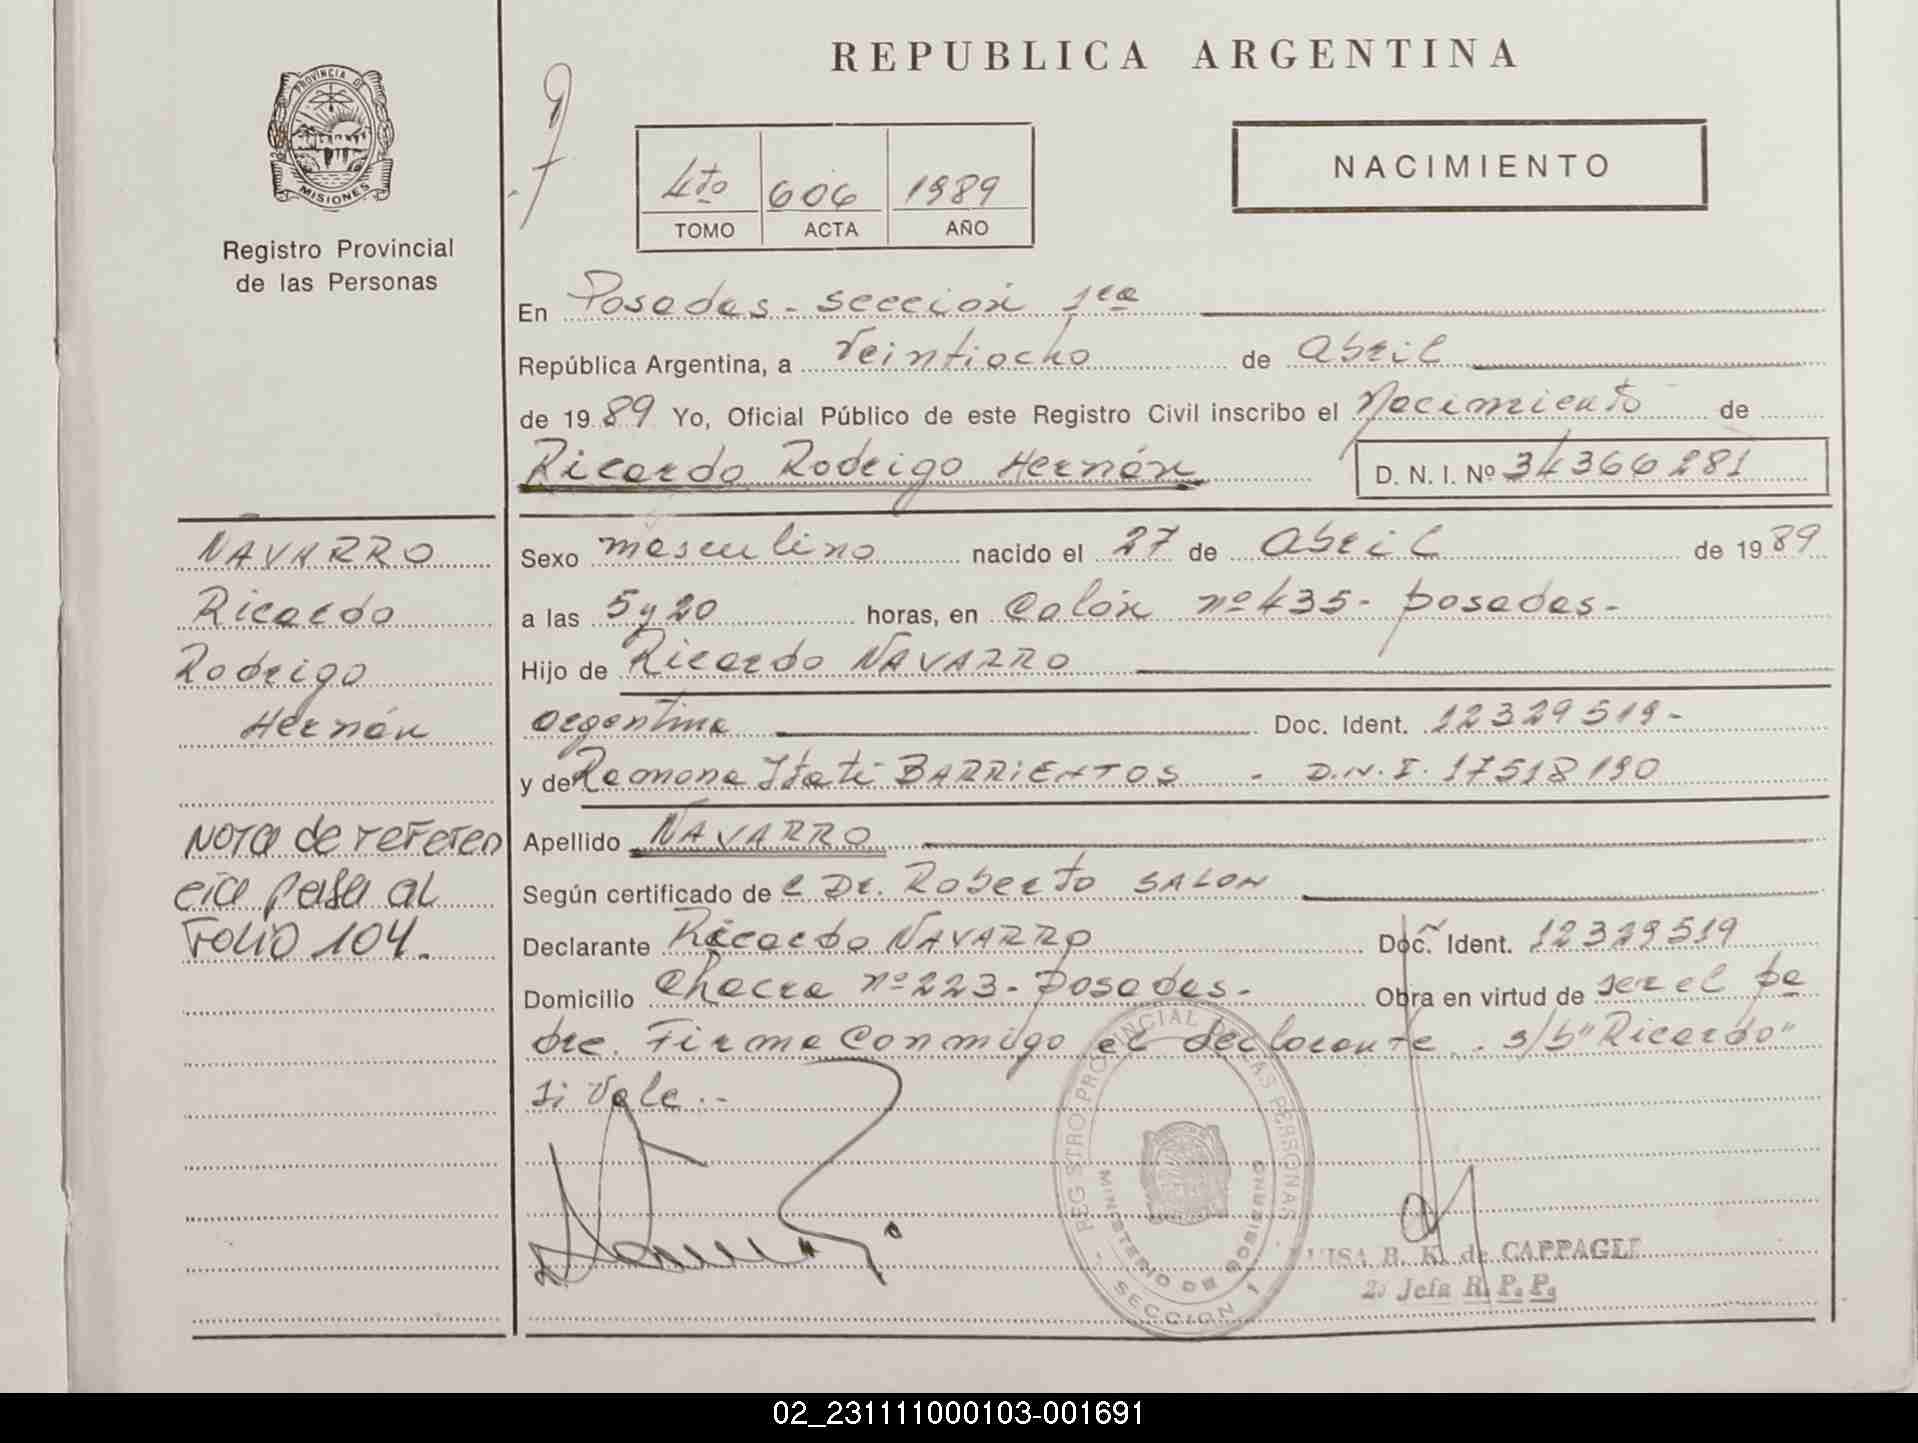 REPUBLICA ARGENTINA
PROVINCIA DE
MISIONES
Registro Provincial
de las Personas
4to 606 1989
TOMO ACTA AÑO
NACIMIENTO
En Posadas - sección 1ra
República Argentina, a Veintiocho de Abril
de 19 89 Yo, Oficial Público de este Registro Civil inscribo el Nacimiento de
Ricardo Rodrigo Hernán D. N. I. Nº 34366281
NAVARRO
Ricardo
Rodrigo
Hernán
Nota de referen
cia pasa al
Folio 104.
Sexo masculino nacido el 27 de Abril de 19 89
a las 5 y 20 horas, en Colón nº 435 - posadas -
Hijo de Ricardo NAVARRO
argentina Doc. Ident. 12329519 -
y de Ramona Itatí BARRIENTOS - D.N.I. 17518190
Apellido NAVARRO
Según certificado de l Dr. Roberto SALON
Declarante Ricardo NAVARRO Doc. Ident. 12329519
Domicilio Chacra nº 223 - posadas - Obra en virtud de ser el pa
dre. Firma conmigo el declarante. s/b "Ricardo"
si Vale. -
REGISTRO PROVINCIAL DE LAS PERSONAS
MINISTERIO DE GOBIERNO
SECCION 1
LUISA B. K. de CAPPAGLI
2ª Jefa R. P. P.
02_231111000103-001691